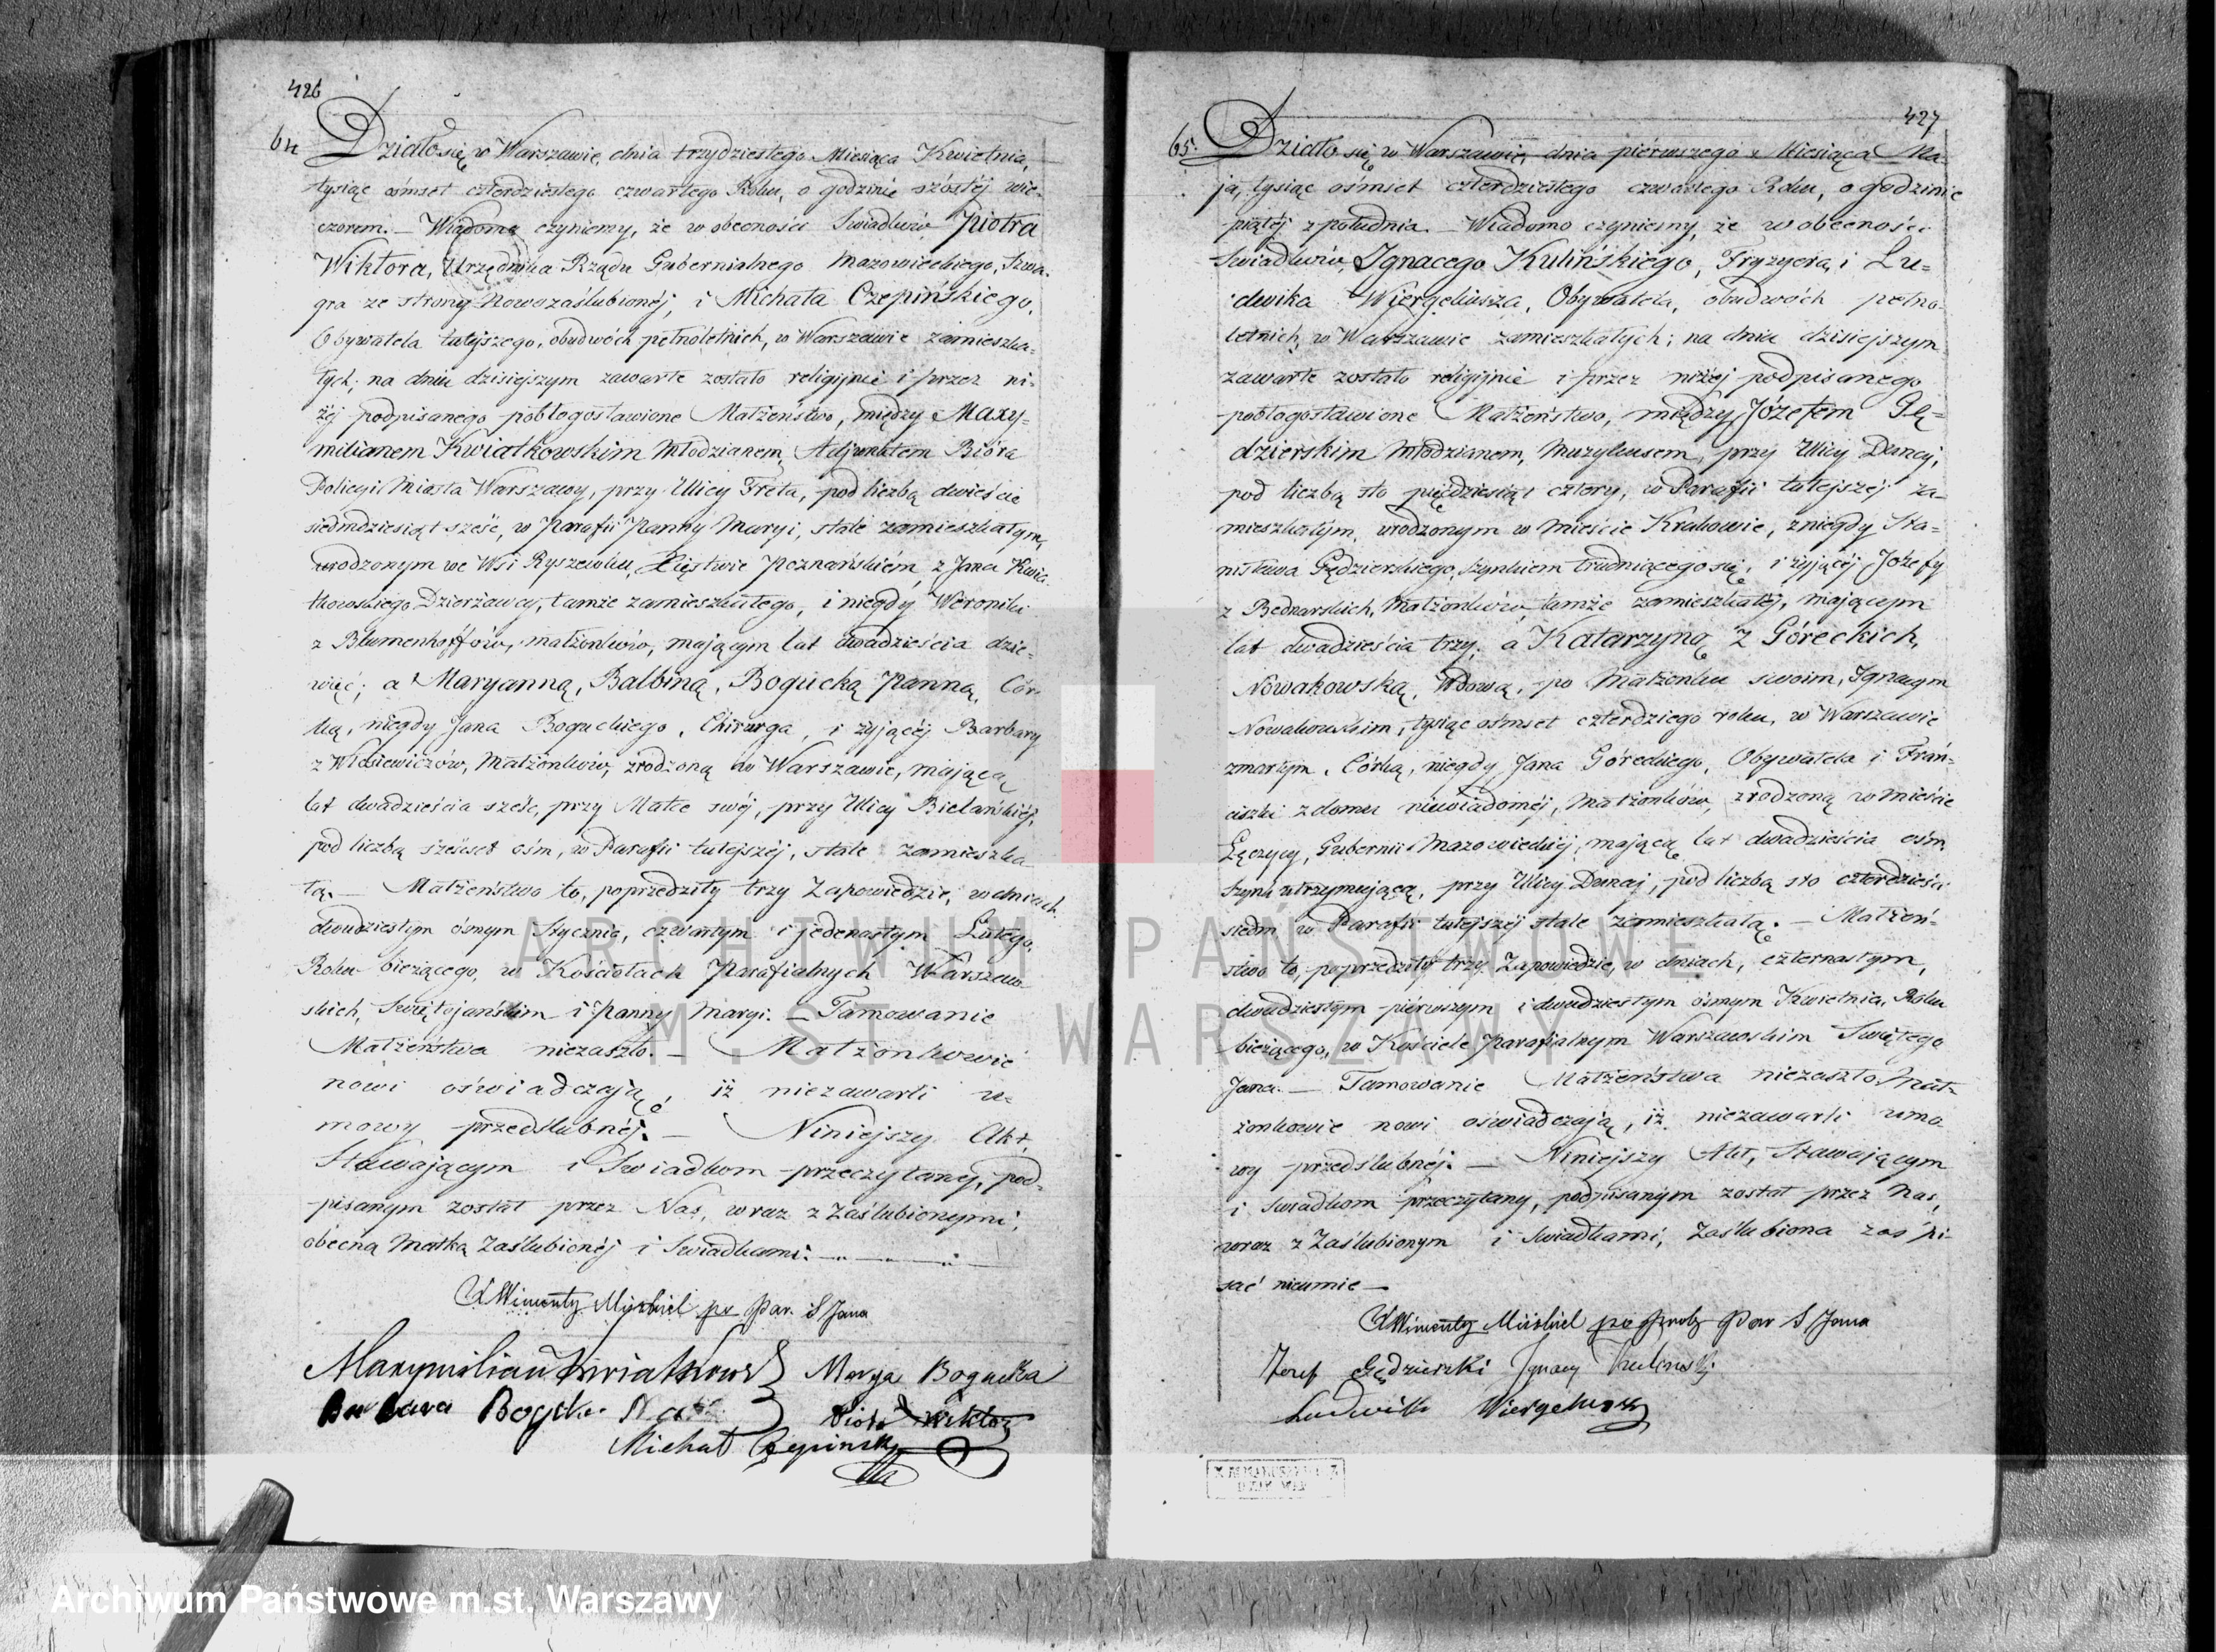 426
64 Działo się w Warszawie, dnia trzydziestego Miesiąca Kwietnia,
tysiąc ośmset czterdziestego czwartego Roku, o godzinie szóstéj wie-
czorem. — Wiadomo czyniemy, że w obecności Swiadków Piotra
Wiktora, Urzędnika Rządu Gubernialnego Mazowieckiego, Szwa-
gra ze strony Nowozaślubionéj, i Michała Czepińskiego,
Obywatela tutejszego, obudwóch pełnoletnich, w Warszawie zamieszka-
łych; na dniu dzisiejszym zawarte zostało religijnie i przez ni-
żéj podpisanego pobłogosławione Małżeństwo, między Maxy-
milianem Kwiatkowskim Młodzianem, Adjunktem Bióra
Policyi Miasta Warszawy, przy Ulicy Freta, pod liczbą dwieście
siedmdziesiąt sześć, w Parafii Panny Maryi, stale zamieszkałym,
urodzonym we Wsi Ryszewku, Xięstwie Poznańskiém, z Jana Kwia-
tkowskiego Dzierżawcy, tamże zamieszkałego, i niegdy Weroniki
z Blumenhoffów, małżonków, mającym lat dwadzieścia dzie-
więć; a Maryanną, Balbiną, Bogucką Panną, Cór-
ką, niegdy Jana Boguckiego, Chirurga, i żyjącéj Barbary
z Małżonków, zrodzoną w Warszawie, mającą
lat dwadzieścia sześć, przy Matce swéj, przy Ulicy Bielańskiéj,
pod liczbą sześcset ośm, w Parafii tutejszéj, stale zamieszka
łą. — Małżeństwo to, poprzedziły trzy Zapowiedzie, w dniach
dwudziestym ósmym Stycznia, czwartym i jedenastym Lutego,
Roku bieżącego, w Kościołach Parafialnych Warszaw-
skich, Świętojańskim i Panny Maryi. — Tamowanie
Małżeństwa niezaszło. — Małżonkowie
nowi oświadczają, iż niezawarli u-
mowy przedślubnéj. — Niniejszy Akt,
Stawającym i Swiadkom przeczytany, pod-
pisanym został przez Nas, wraz z Zaślubionymi,
obecną Matką Zaślubionéj i Swiadkami.
X Wincenty po Par. S Jana
Maxymilian Kwiatkows Marya Bogucka
Barbara Piotr Wiktor
Michał Czepiński
427
65. Działo się w Warszawie, dnia piérwszego Miesiąca Ma-
ja, tysiąc ośmset czterdziestego czwartego Roku, o godzinie
piątéj z południa. — Wiadomo czyniemy, że w obecności
Swiadków, Ignacego Kulińskiego, Fryzyera, i Lu-
dwika Wiergeliusza, Obywatela, obudwóch pełno-
letnich, w Warszawie zamieszkałych; na dniu dzisiejszym
zawarte zostało religijnie i przez niżéj podpisanego
pobłogosławione Małżeństwo, między Józefem Gę-
dzierskim Młodzianem, Muzykusem, przy Ulicy Dunaj,
pod liczbą sto pięćdziesiąt cztery, w Parafii tutejszéj za-
mieszkałym, urodzonym w Mieście Krakowie, z niegdy Sta-
nisława Gędzierskiego, szynkiem trudniącego się, i żyjącéj Józefy
z Bednarskich, Małżonków, tamże zamieszkałéj, mającym
lat dwadzieścia trzy; a Katarzyną z Góreckich,
Nowakowską, Wdową, po Małżonku swoim, Ignacym
Nowakowskim, tysiąc ośmset czterdziego roku, w Warszawie
zmarłym, Córką, niegdy Jana Góreckiego, Obywatela i Fran-
ciszki z domu niewiadoméj, Małżonków, zrodzoną w mieście
Łęczycy, Gubernii Mazowieckiéj, mającą lat dwadzieścia ośm
szynk utrzymującą, przy Ulicy Dunaj, pod liczbą sto czterdzieści
siedm, w Parafii tutejszéj stale zamieszkałą. — Małżeń-
stwo to, poprzedziły trzy Zapowiedzie, w dniach, czternastym,
dwudziestym piérwszym i dwudziestym ósmym Kwietnia, Roku
bieżącego, w Kościele Parafialnym Warszawskim Świętego
Jana. — Tamowanie Małżeństwa niezaszło. Mał-
żonkowie nowi oświadczają, iż niezawarli umo-
wy przedślubnéj. — Niniejszy Akt, Stawającym
i Swiadkom przeczytany, podpisanym został przez Nas,
wraz z Zaślubionym i Swiadkami, Zaślubiona zaś pi-
sać nieumie —
X Wincenty po Par S Jana
Jozef Gędzierski Ignacy Kulinski
Ludwik
ARCHIWUM PAŃSTWOWE
M.ST. WARSZAWY
Archiwum Państwowe m.st. Warszawy